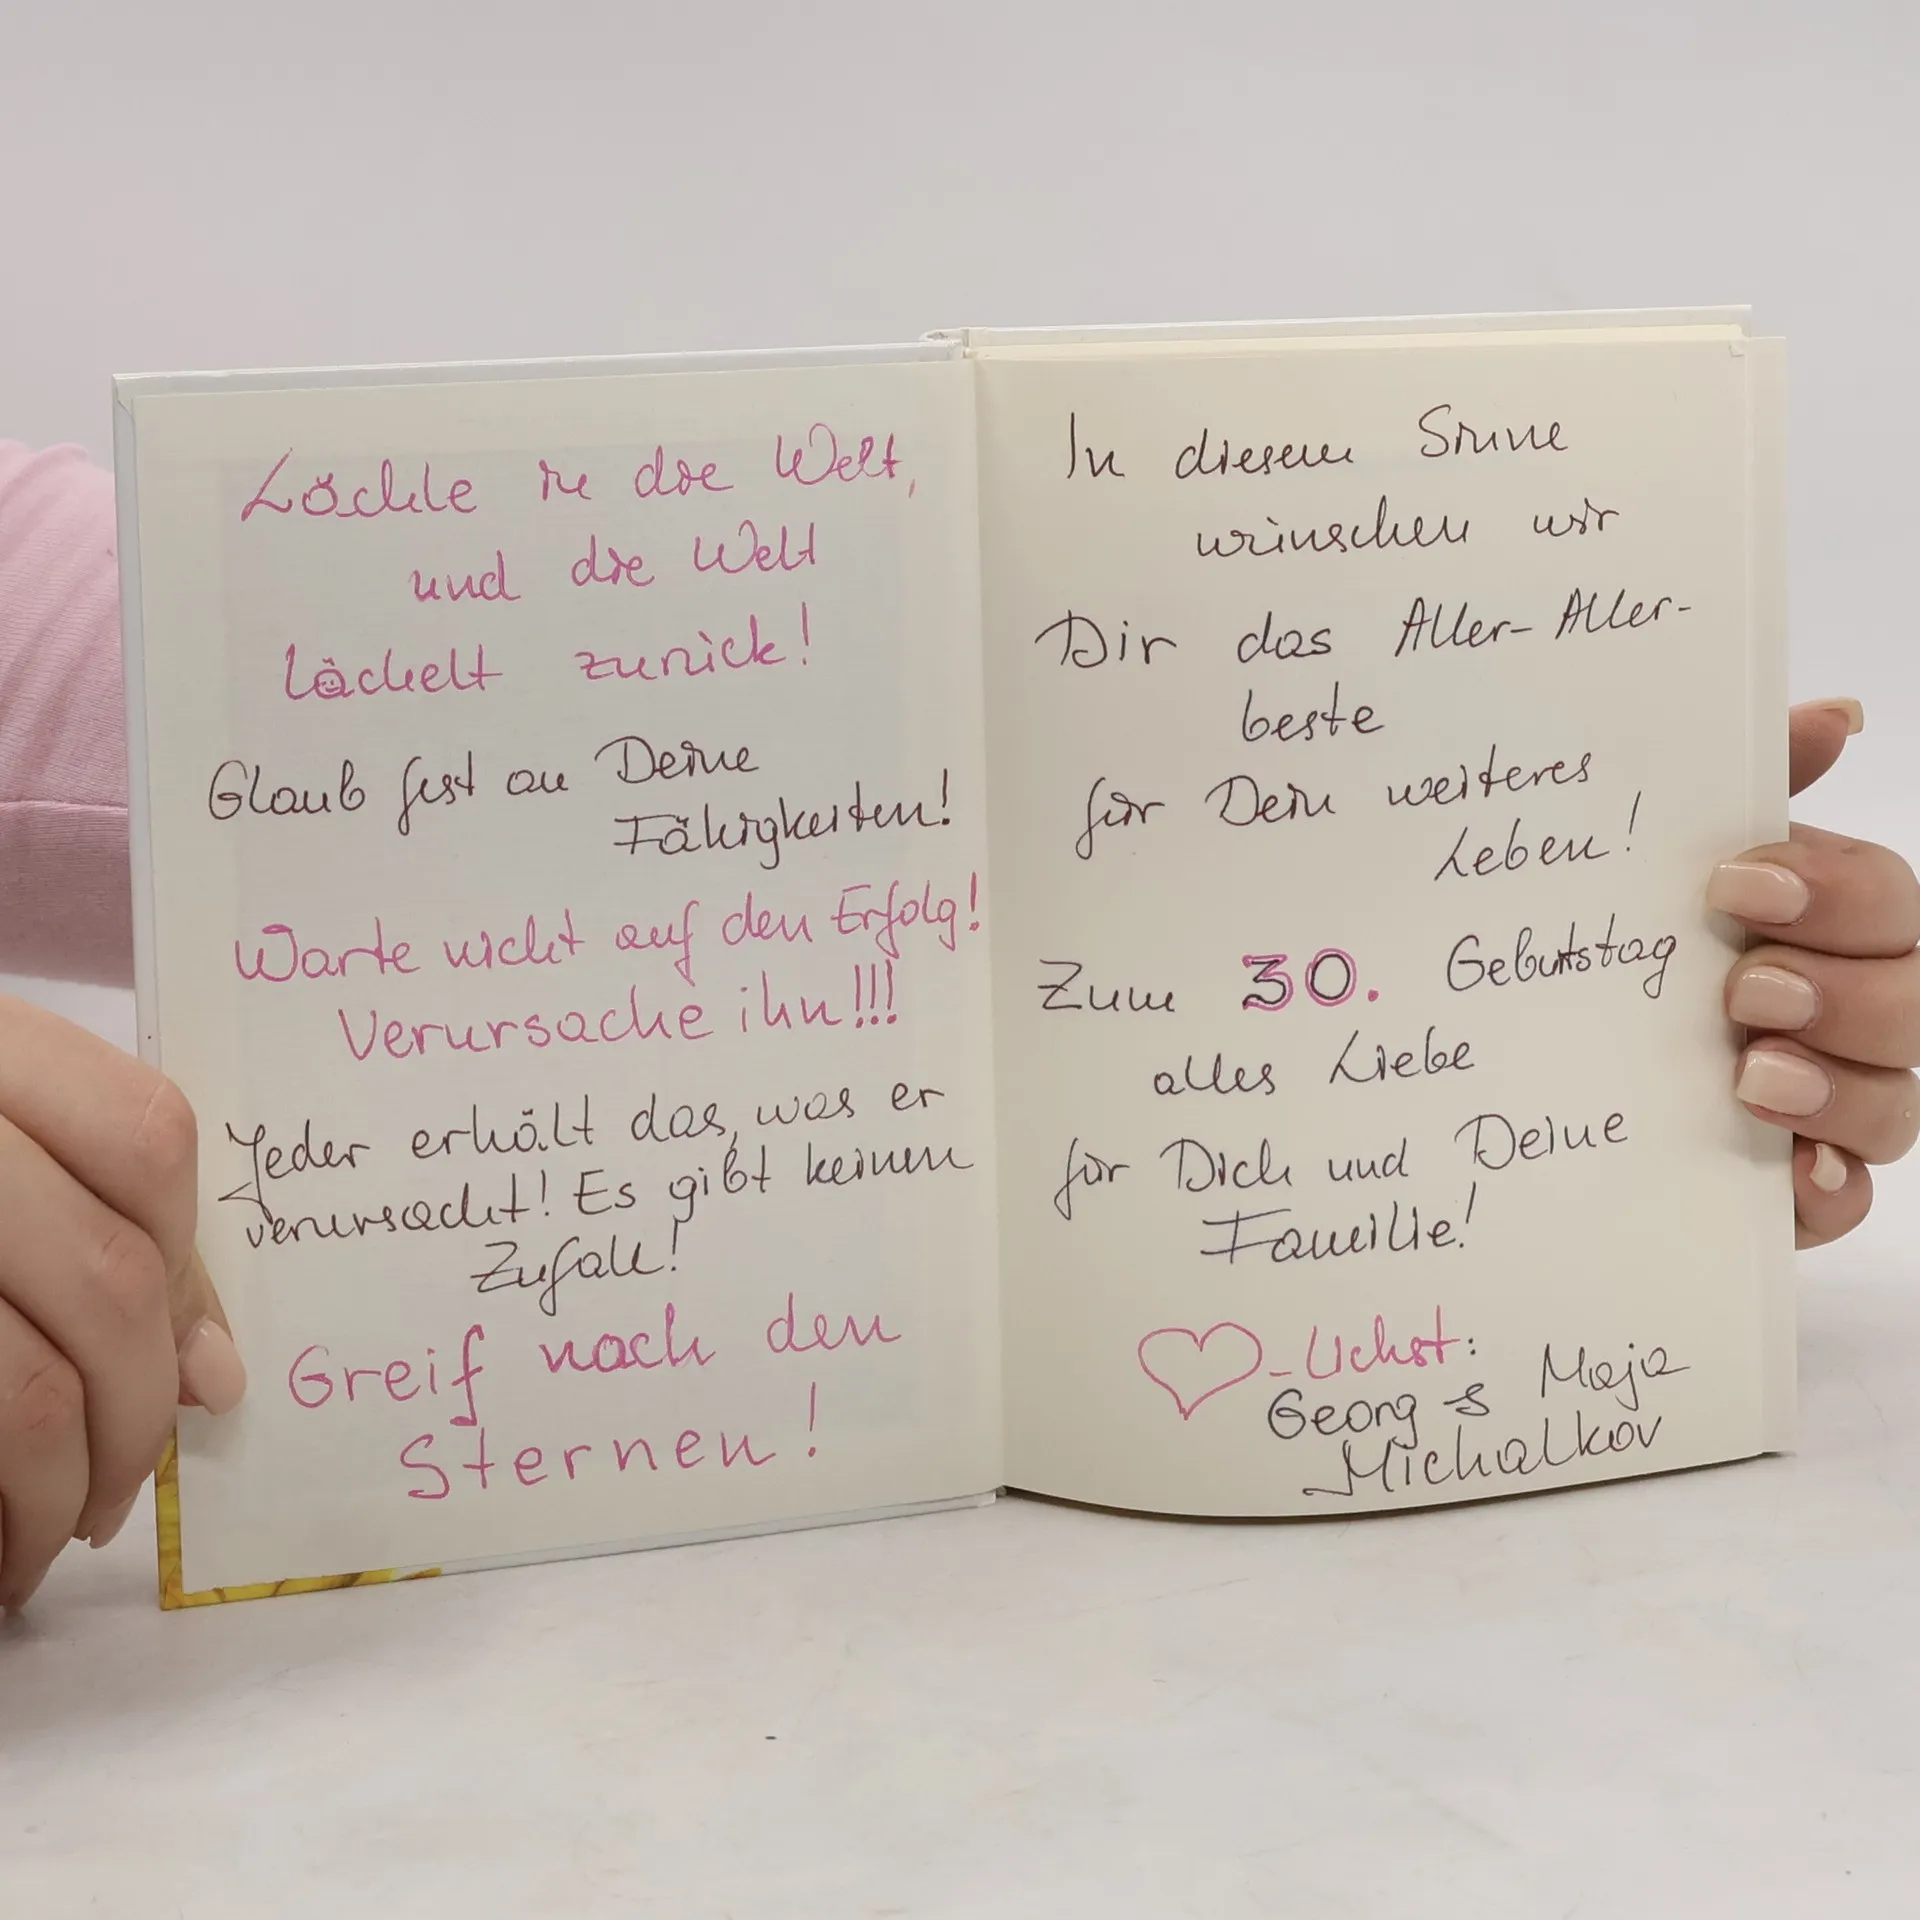 Lächle in die Welt,
und die Welt
lächelt zurück!
Glaub fest an Deine
Fähigkeiten!
Warte nicht auf den Erfolg!
Verursache ihn!!!
Jeder erhält das, was er
verursacht! Es gibt keinen
Zufall!
Greif nach den
Sternen!
In diesem Sinne
wünschen wir
Dir das Aller-Aller-
beste
für Dein weiteres
Leben!
Zum 30. Geburtstag
alles Liebe
für Dich und Deine
Familie!
♡-lichst:
Georg & Maja
Michalkov